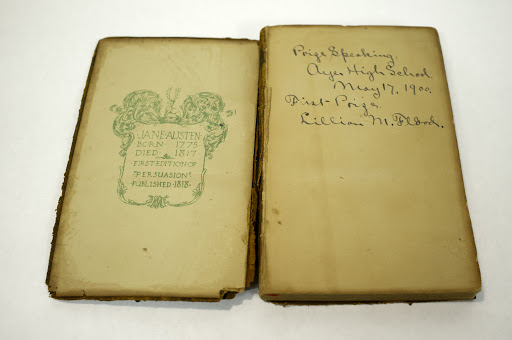 JANE·AUSTEN·
BORN · 1775
DIED · 1817
FIRST·EDITION·OF
"PERSUASION"
PUBLISHED·1818·
Prize Speaking.
Ayer High School
May 17, 1900.
First Prize.
Lillian M.